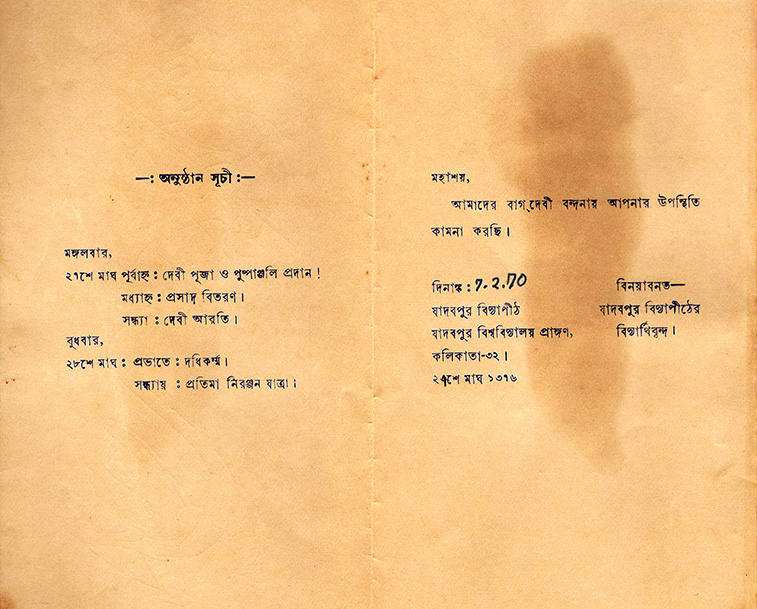 —: অনুষ্ঠান সূচী :—
মঙ্গলবার,
২৭শে মাঘ পূর্বাহ্ন : দেবী পূজা ও পুষ্পাঞ্জলি প্রদান !
মধ্যাহ্ন : প্রসাদ বিতরণ।
সন্ধ্যা : দেবী আরতি।
বুধবার,
২৮শে মাঘ : প্রভাতে : দধিকর্ম্ম।
সন্ধ্যায় : প্রতিমা নিরঞ্জন যাত্রা।
মহাশয়,
আমাদের বাগ্‌দেবী বন্দনায় আপনার উপস্থিতি
কামনা করছি।
দিনাঙ্ক : 7.2.70
যাদবপুর বিদ্যাপীঠ
যাদবপুর বিশ্ববিদ্যালয় প্রাঙ্গণ,
কলিকাতা-৩২।
মাঘ ১৩৭৬
বিনয়াবনত—
যাদবপুর বিদ্যাপীঠের
বিদ্যার্থিবৃন্দ।